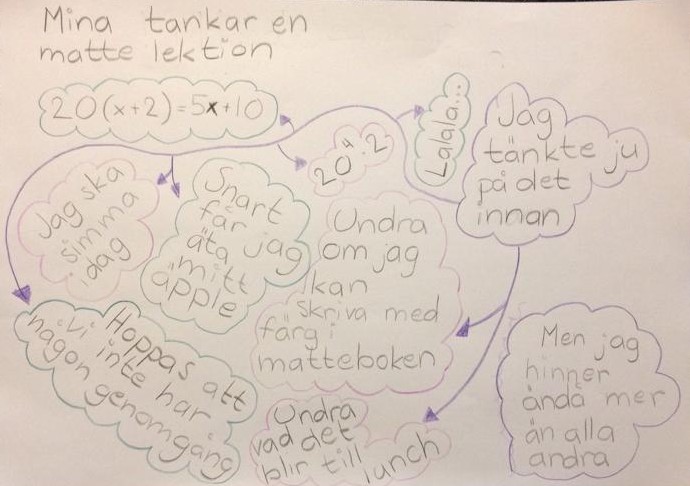 Mina tankar en
matte lektion
20(x+2)=5x+10
Lalala...
Jag
tänkte ju
på det
innan
20⁴·2
Jag ska
simma
idag
Snart
får jag
äta
mitt
äpple
Undra
om jag
kan
skriva med
färg i
matteboken
Hoppas att
vi inte har
någon genomgång
Undra
vad det
blir till
lunch
Men jag
hinner
ändå mer
än alla
andra